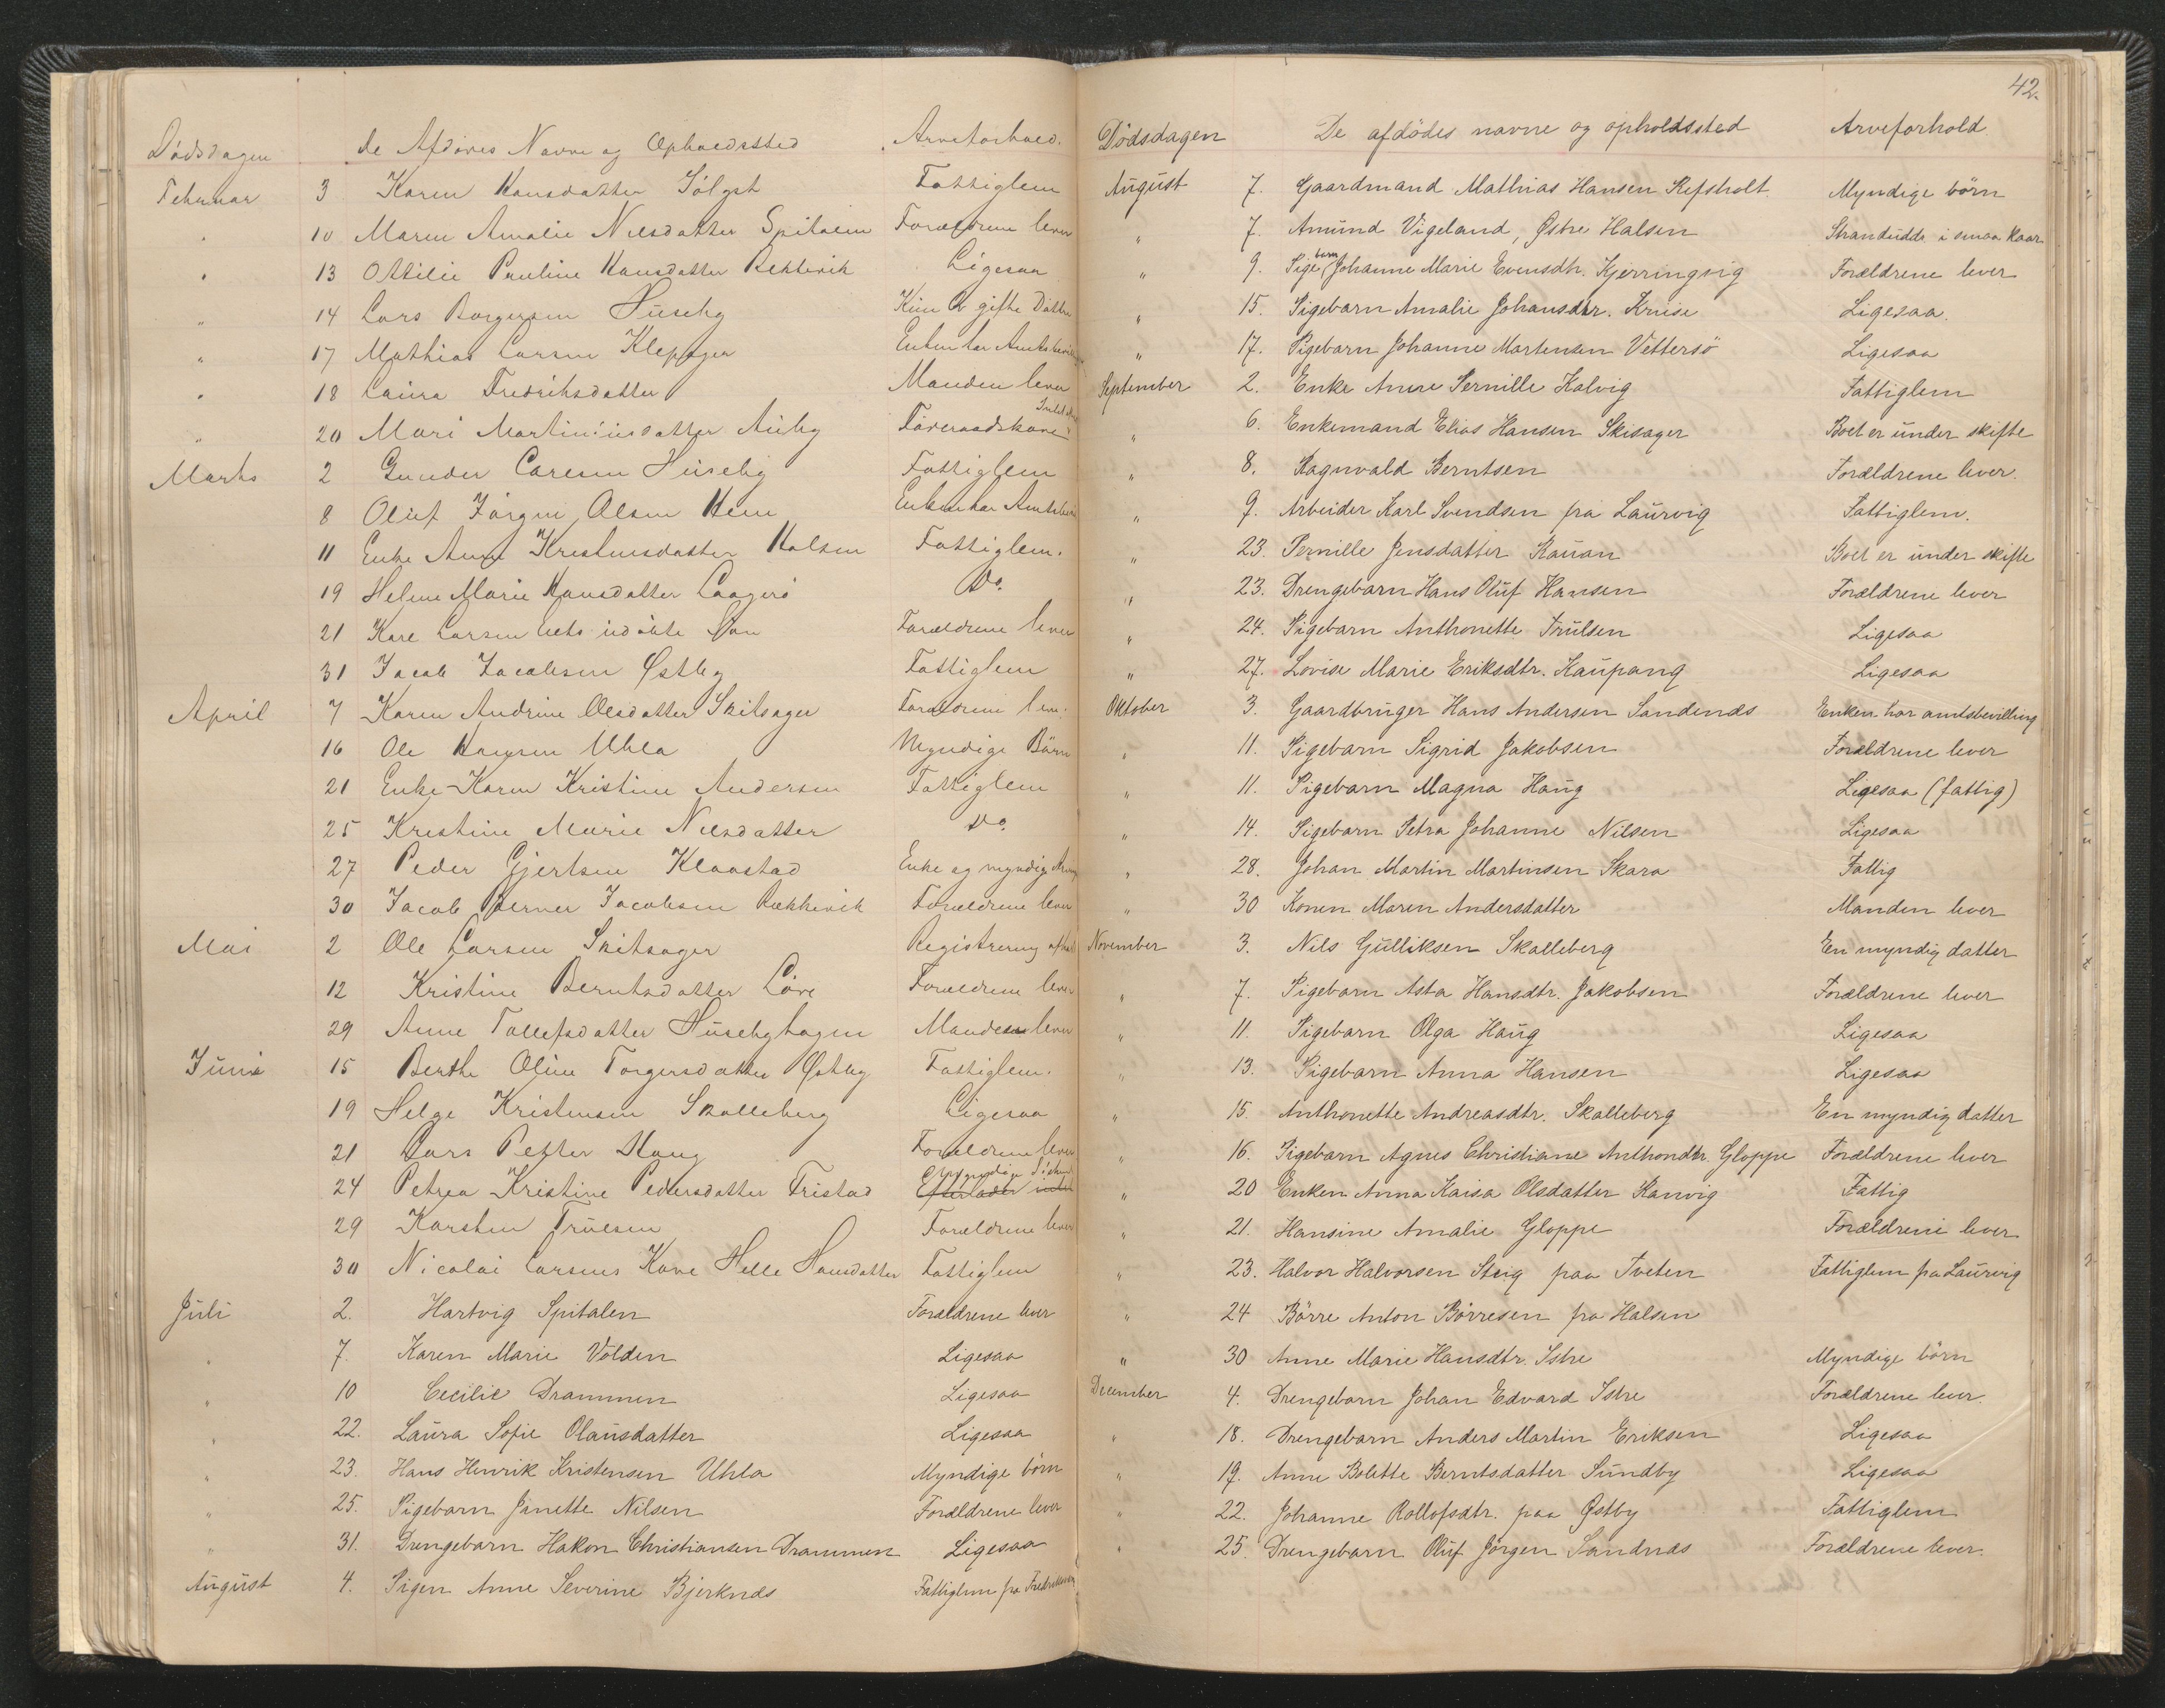 Dödsdagen de Afdödes Navne og Opholdssted Arveforhold.
Februar 3 Karen Hansdatter Sölyst Fattiglem
" 10 Maren Amalie Nilsdatter Spitalen Forældrene lever
" 13 Ottilie Pauline Hansdatter Rekkevik Ligesaa
" 14 Lars Borgersen Huseby Kun 2 gifte Døttre
" 17 Mathias Larsen Klepager Enken har Amtsbevilling
" 18 Laura Fredriksdatter Manden lever
" 20 Mari Martiniusdatter Auby Föderaadskone
Marts 2 Gunder Larsen Huseby Fattiglem
8 Oluf Jörgen Olsen Hem Enken har Amtsbev
11 Enke Anne Kristensdatter Halsen Fattiglem.
19 Helene Marie Hansdatter Laagerö Do.
21 Karl Larsen udöbte Søn Forældrene lever
31 Jacob Jacobsen Østby Fattiglem
April 7 Karen Andrine Olsdatter Skitsager Forældrene lev.
16 Ole Hansen Uhla Myndige Börn
21 Enke Karen Kristine Andersen Fattiglem
25 Kristine Marie Nilsdatter Do.
27 Peder Gjertsen Klaastad Enke og myndig
30 Jacob Verner Jacobsen Rækkevik Forældrene lever
Mai 2 Ole Larsen Skitsager Registrering
12 Kristine Berntsdatter Löve Forældrene lever
29 Anne Tollefsdatter Husebyhagen Manden lever
Juni 15 Berthe Oline Torgersdatter Østby Fattiglem.
19 Helge Kristensen Skalleberg Ligesaa
21 Lars Petter Haug Forældrene lever
24 Petrea Kristine Pedersdatter Fristad Efterlader intet
29 Karsten Trulsen Forældrene lever
30 Nicolai Larsens Kone Helle Hansdatter Fattiglem
Juli 2. Hartvig Spitalen Forældrene lever
" 7. Karen Marie Volden Ligesaa
" 10 Cecilie Drammen Ligesaa
" 22. Laura Sofie Olausdatter Ligesaa
" 23. Hans Henrik Kristensen Uhla Myndige börn
" 25. Pigebarn Janette Nilsen Forældrene lever
" 31. Drengebarn Hakon Christiansen Drammen Ligesaa
August 4. Pigen Anne Severine Bjerknes Fattiglem fra
42.
Dödsdagen De afdödes navne og opholdssted Arveforhold.
August 7. Gaardmand Mathias Hansen Refsholt. Myndige börn
" 7. Amund Vigeland, Østre Halsen Strandsidder i smaa kaar
" 9. Pigebarn Johanne Marie Evensdtr. Kjerringvig Forældrene lever
" 15. Pigebarn Amalie Johansdtr. Kruse Ligesaa.
" 17. Pigebarn Johanne Martensen Vettersö Ligesaa
September 2. Enke Anne Pernille Kalvig Fattiglem
" 6. Enkemand Elias Hansen Skisager Boet er under skifte
" 8. Ragnvald Berntsen Forældrene lever.
" 9. Arbeider Karl Svendsen fra Laurvig Fattiglem.
" 23. Pernille Jensdatter Kauan Boet er under skifte
" 23. Drengebarn Hans Oluf Hansen Forældrene lever
" 24. Pigebarn Anthonette Trulsen Ligesaa
" 27. Lovise Marie Eriksdtr. Kaupang Ligesaa
Oktober 3. Gaardbruger Hans Andersen Sandenæs Enken har amtsbevilling
" 11. Pigebarn Sigrid Jakobsen Forældrene lever
" 11. Pigebarn Magna Haug Ligesaa (fattig)
" 14. Pigebarn Petra Johanne Nilsen Ligesaa
" 28. Johan Martin Martinsen Skara Fattig
" 30 Konen Maren Andersdatter Manden lever
November 3. Nils Gulliksen Skalleberg En myndig datter
" 7. Pigebarn Asta Hansdtr. Jakobsen Forældrene lever
" 11. Pigebarn Olga Haug Ligesaa
" 13. Pigebarn Anna Hansen Ligesaa
" 15. Anthonette Andreasdtr. Skalleberg En myndig datter
" 16. Pigebarn Agnes Christiane Anthondtr. Gloppe Forældrene lever
" 20 Enken Anna Kaisa Olsdatter Kanvig Fattig
" 21. Hansine Amalie Gloppe Forældrene lever
" 23. Halvor Halvorsen Steig paa Tveten Fattiglem fra Laurvig
" 24 Börre Anton Börresen fra Halsen
" 30 Anne Marie Hansdtr. Istre Myndige börn
December 4. Drengebarn Johan Edvard Istre Forældrene lever.
" 18. Drengebarn Anders Martin Eriksen Ligesaa
" 19. Anne Bolette Berntsdatter Sundby Ligesaa
" 22. Johanne Rollofsdtr. paa Østby Fattiglem
" 25. Drengebarn Oluf Jörgen Sandnæs Forældrene lever.